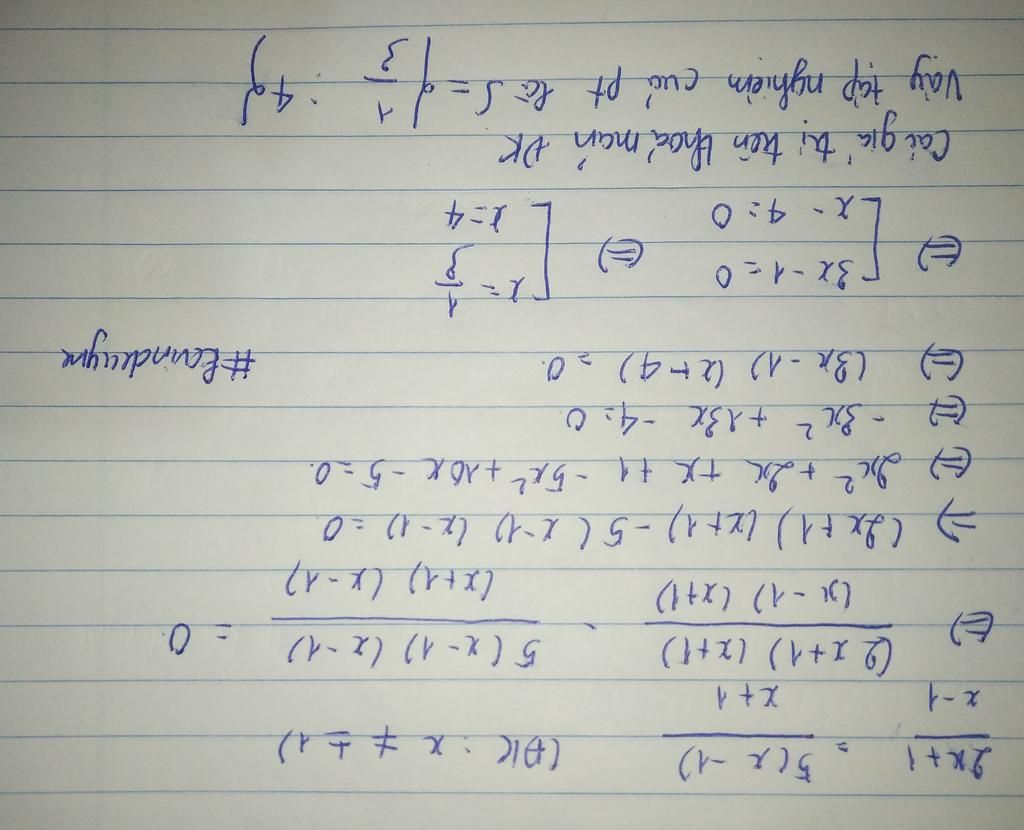 2x+1 / x-1 = 5(x-1) / x+1 (ĐK: x ≠ ± 1)
(=) (2x+1)(x+1) / (x-1)(x+1) - 5(x-1)(x-1) / (x+1)(x-1) = 0
=) (2x+1)(x+1) - 5(x-1)(x-1) = 0
(=) 2x² + 2x + x + 1 - 5x² + 10x - 5 = 0
(=) - 3x² + 13x - 4 = 0
(=) (3x-1)(x-4) = 0
(=) [ 3x-1=0 (=) [ x = 1/3
x - 4 = 0 x = 4
Các giá trị trên thoả mãn ĐK
Vậy tập nghiệm của pt là S = { 1/3 ; 4 }